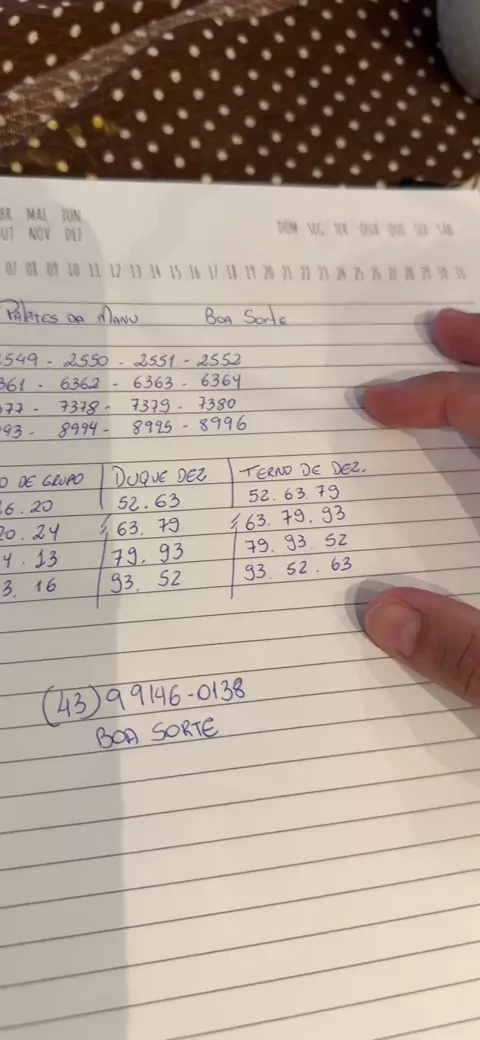 BR MAI JUN
UT NOV DEZ
DOM SEG TER QUA QUI SEX SAB
07 08 09 10 11 12 13 14 15 16 17 18 19 20 21 22 23 24 25 26 27 28 29 30 31
PALPITES DA MANU BOA SORTE
2549 - 2550 - 2551 - 2552
361 - 6362 - 6363 - 6364
377 - 7378 - 7379 - 7380
993 - 8994 - 8995 - 8996
O DE GRUPO DUQUE DEZ TERNO DE DEZ.
16.20 52.63 52.63.79
20.24 63.79 63.79.93
4.13 79.93 79.93.52
3.16 93.52 93.52.63
(43)99146-0138
BOA SORTE